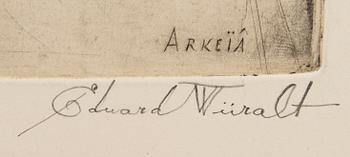 ARKEÏA
Eduard Wiiralt